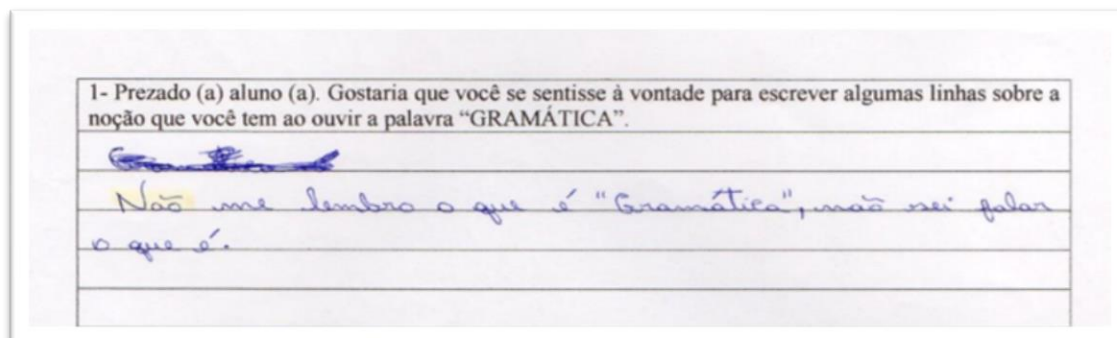 1- Prezado (a) aluno (a). Gostaria que você se sentisse à vontade para escrever algumas linhas sobre a
noção que você tem ao ouvir a palavra “GRAMÁTICA”.
Não me lembro o que é "Gramática", não sei falar
o que é.